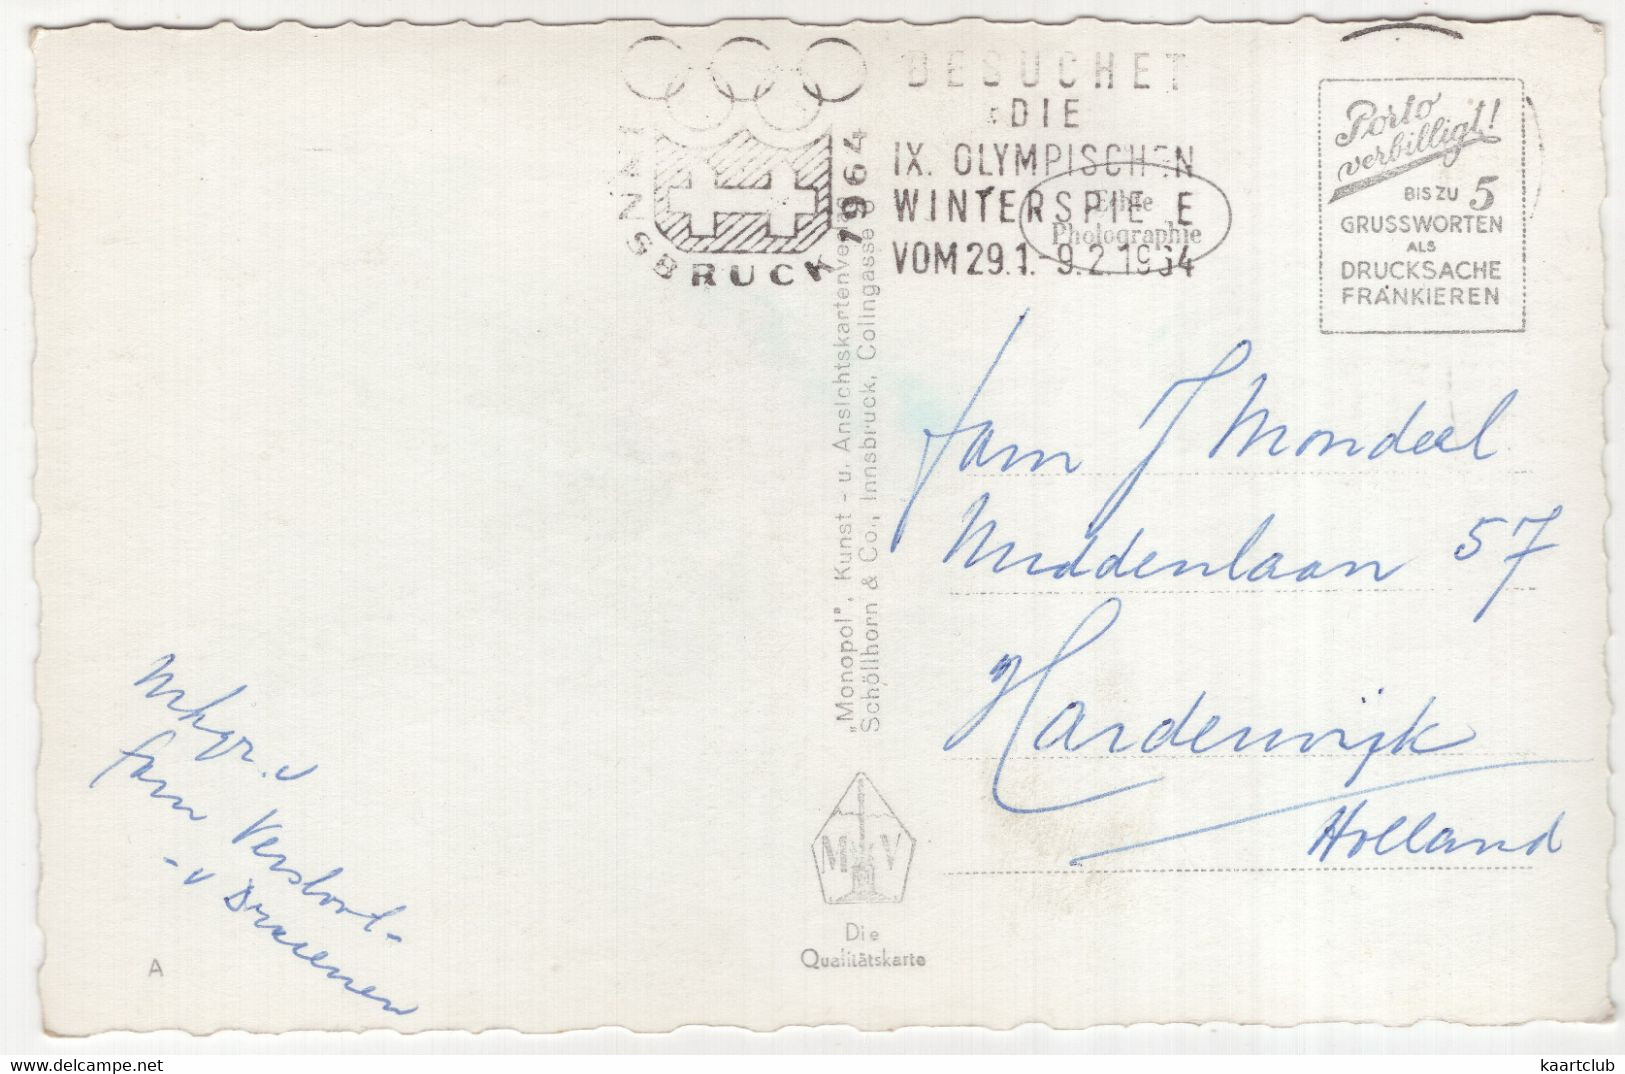 INNSBRUCK 1964
BESUCHET
DIE
IX. OLYMPISCHEN
WINTERSPIELE
VOM 29.1.-9.2.1964
Echte
Photographie
Porto
verbilligt!
BIS ZU 5
GRUSSWORTEN
ALS
DRUCKSACHE
FRANKIEREN
„Monopol", Kunst- u. Ansichtskartenverlag
Schöllhorn & Co., Innsbruck, Colingasse
Fam J Mondeel
Middenlaan 57
Harderwijk
Holland
M V
Die
Qualitätskarte
fam
- v
A
delcampe.net
kaartclub